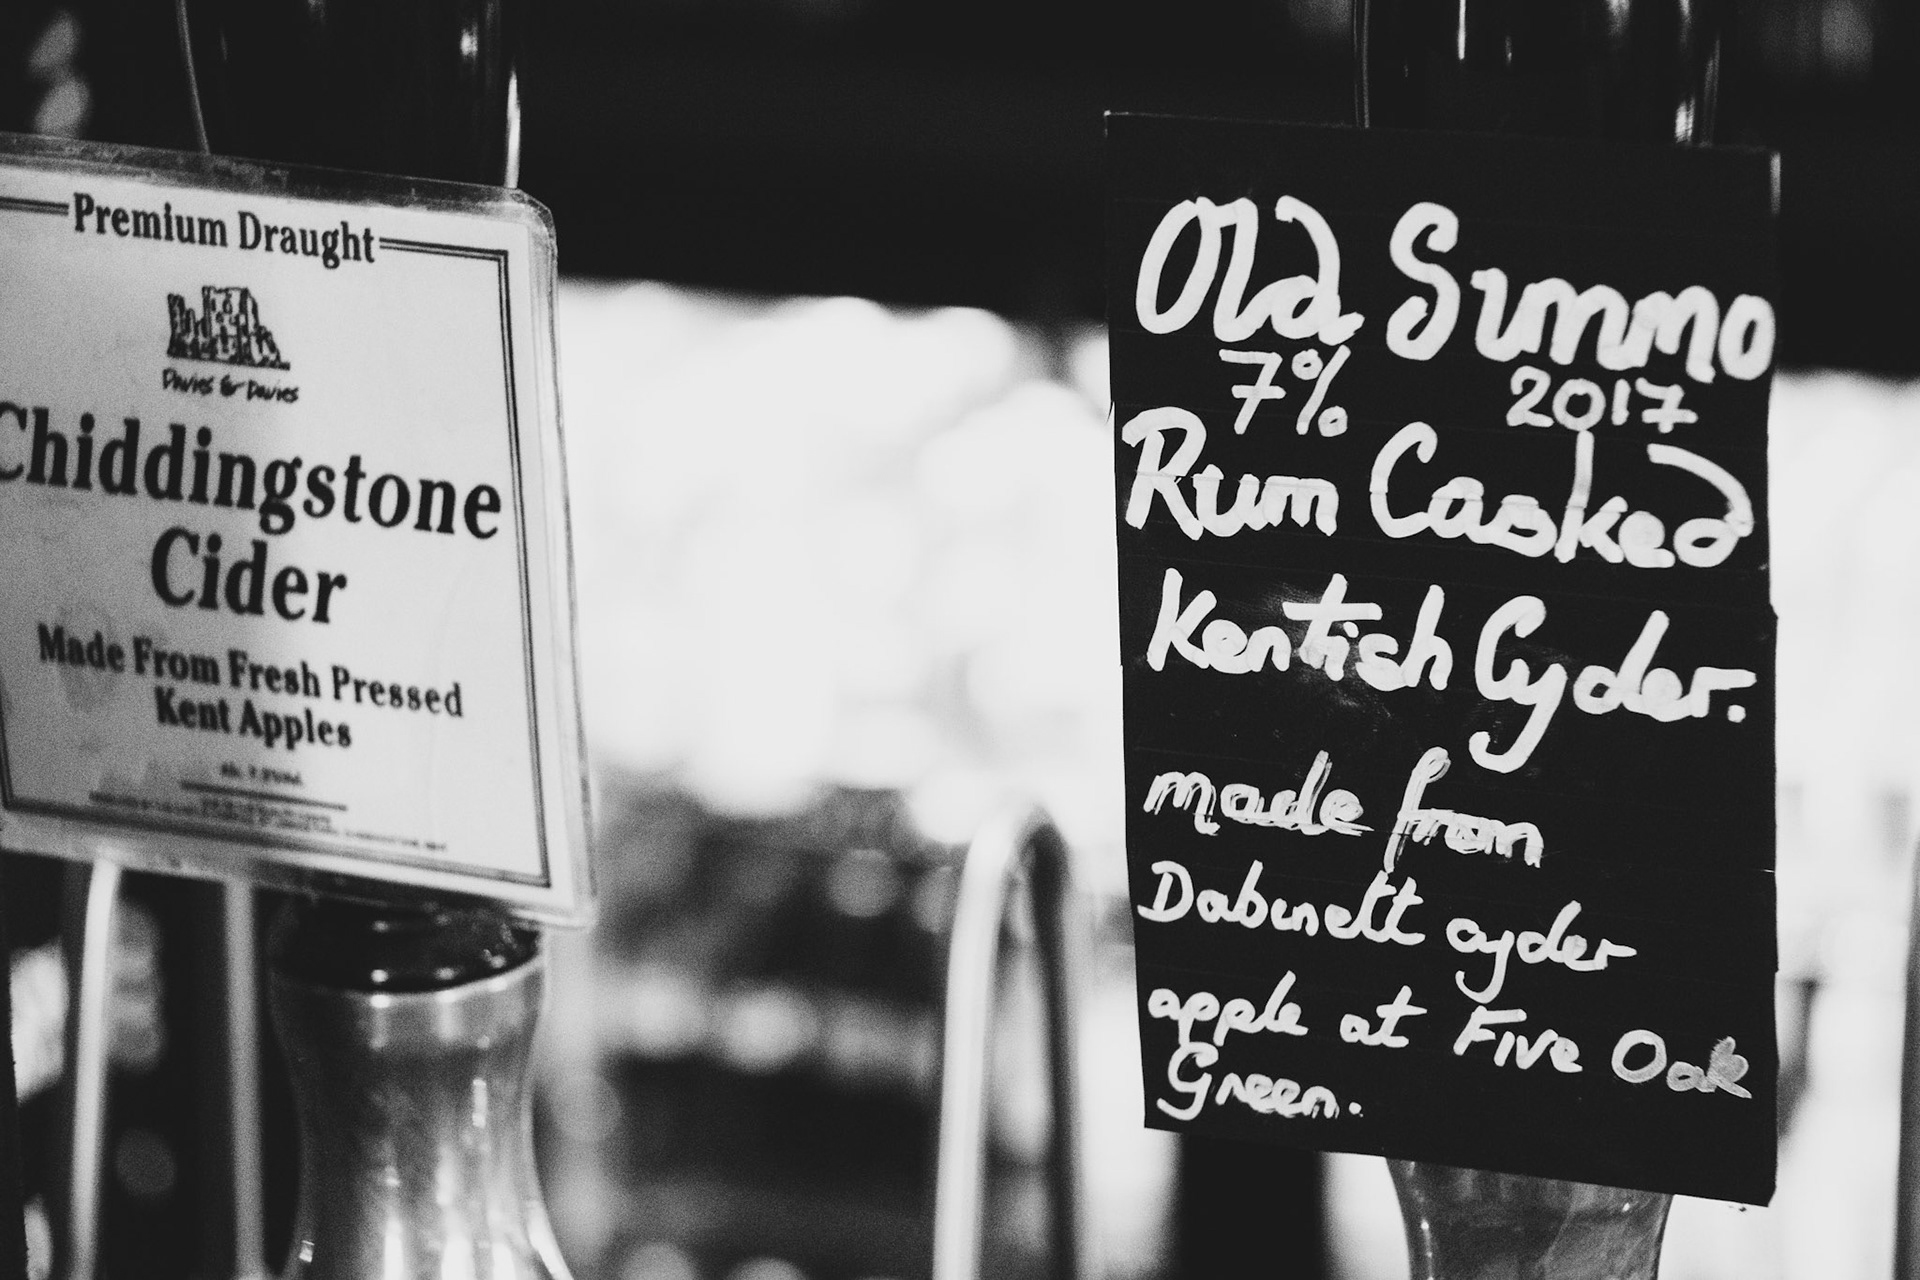 Premium Draught
Davies & Davies
Chiddingstone
Cider
Made From Fresh Pressed
Kent Apples
Old Summo
7% 2017
Rum Casked
Kentish Cyder.
made from
Dabinett cyder
apple at Five Oak
Green.